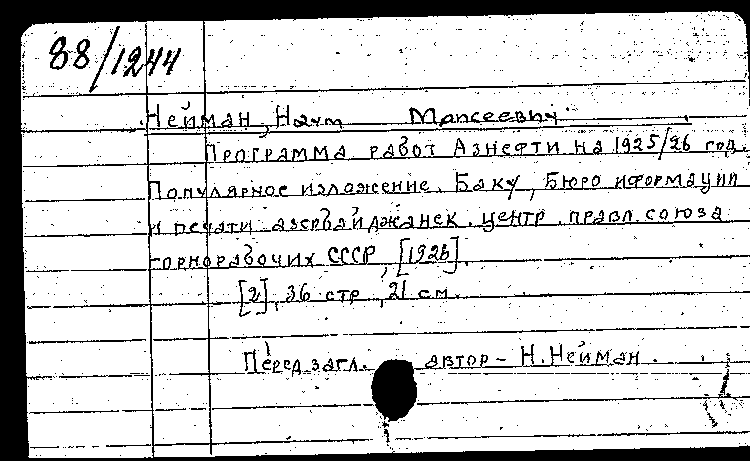 88/1244
Нейман, Наум Моисеевич.
Программа работ Азнефти на 1925/26 год.
Популярное изложение. Баку, Бюро иформации
и печати азербайджанск. центр. правл. союза
горнорабочих СССР, [1926].
[2], 36 стр., 21 см.
Перед загл. автор – Н. Нейман.